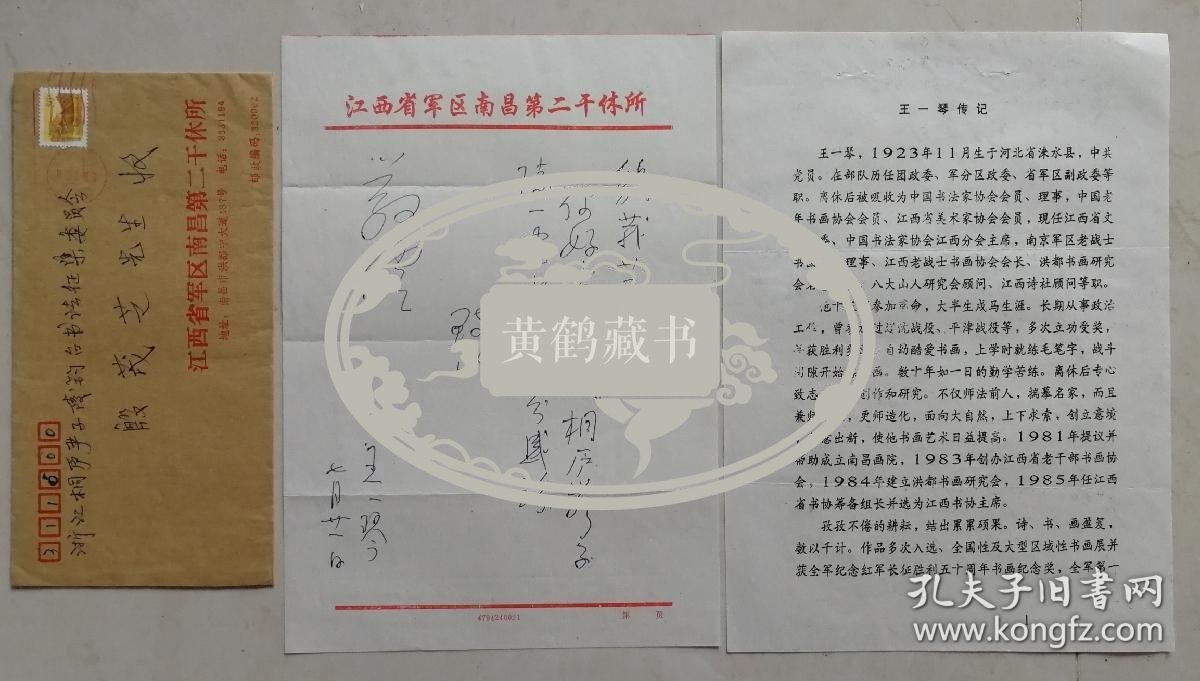 311500
浙江桐庐严子陵钓台书法征集委员会
殷茂芝先生 收
江西省军区南昌第二干休所
地址：南昌市洪都中大道187号 电话：8331194
邮政编码：330002
江西省军区南昌第二干休所
您好
桐庐
王一琴
七月廿一日
4794240021
第 页
王一琴传记
王一琴，1923年11月生于河北省涞水县，中共
党员。在部队历任团政委、军分区政委、省军区副政委等
职。离休后被吸收为中国书法家协会会员、理事，中国老
年书画协会会员、江西省美术家协会会员，现任江西省文
委、中国书法家协会江西分会主席，南京军区老战士
书 理事、江西老战士书画协会会长、洪都书画研究
会 八大山人研究会顾问、江西诗社顾问等职。
他十 参加革命，大半生戎马生涯。长期从事政治
工作，曾参 过 战役、平津战役等，多次立功受奖，
获胜利 自幼酷爱书画，上学时就练毛笔字，战斗
间隙开始 画。数十年如一日的勤学苦练。离休后专心
致志 创作和研究。不仅师法前人，揣摹名家，而且
兼 更师造化，面向大自然，上下求索，创立意境
出新，使他书画艺术日益提高。1981年提议并
帮助成立南昌画院，1983年创办江西省老干部书画协
会，1984年建立洪都书画研究会，1985年任江西
省书协筹备组长并选为江西书协主席。
孜孜不倦的耕耘，结出累累硕果。诗、书、画盈笈，
数以千计。作品多次入选、全国性及大型区域性书画展并
获全军纪念红军长征胜利五十周年书画纪念奖，全军第一
1
黄鹤藏书
孔夫子旧书网
www.kongfz.com